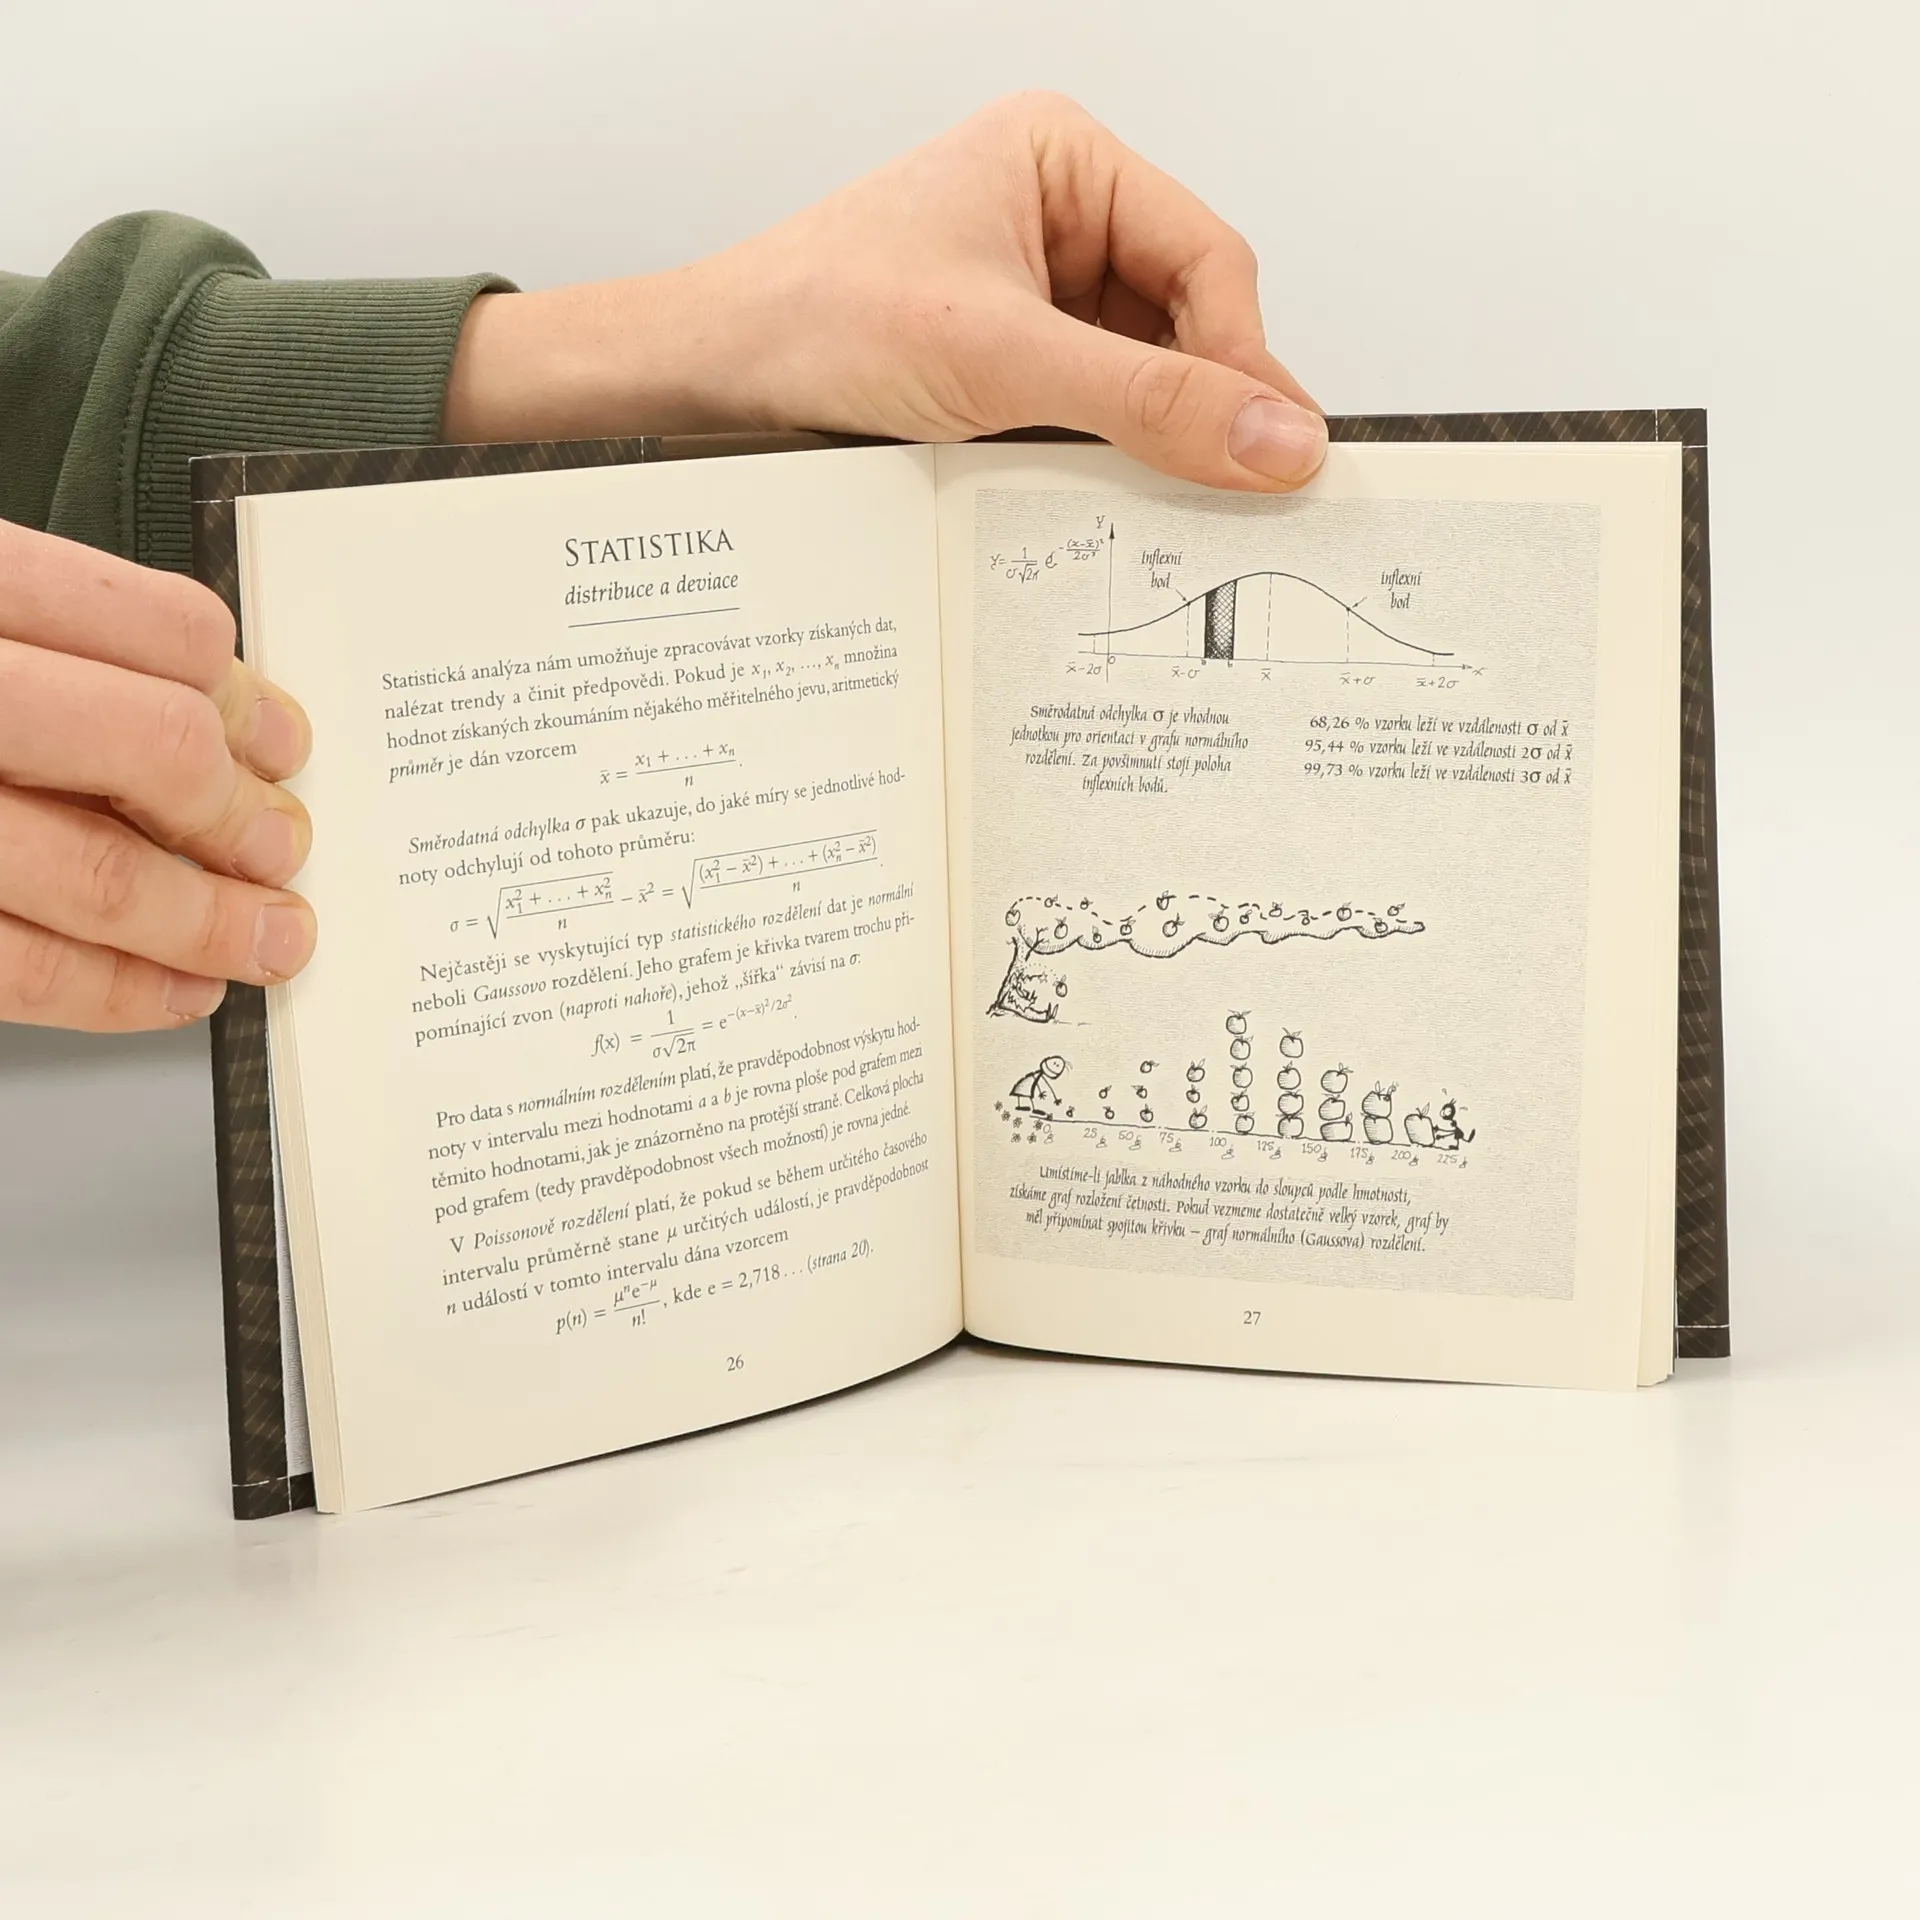 STATISTIKA
distribuce a deviace
Statistická analýza nám umožňuje zpracovávat vzorky získaných dat,
nalézat trendy a činit předpovědi. Pokud je x₁, x₂, …, xₙ množina
hodnot získaných zkoumáním nějakého měřitelného jevu, aritmetický
průměr je dán vzorcem
x̄ = (x₁ + … + xₙ)/n.
Směrodatná odchylka σ pak ukazuje, do jaké míry se jednotlivé hod-
noty odchylují od tohoto průměru:
σ = √((x₁² + … + xₙ²)/n − x̄²) = √(((x₁² − x̄²) + … + (xₙ² − x̄²))/n).
Nejčastěji se vyskytující typ statistického rozdělení dat je normální
neboli Gaussovo rozdělení. Jeho grafem je křivka tvarem trochu při-
pomínající zvon (naproti nahoře), jehož „šířka“ závisí na σ:
f(x) = 1/(σ√2π) = e^(−(x−x̄)²/2σ²).
Pro data s normálním rozdělením platí, že pravděpodobnost výskytu hod-
noty v intervalu mezi hodnotami a a b je rovna ploše pod grafem mezi
těmito hodnotami, jak je znázorněno na protější straně. Celková plocha
pod grafem (tedy pravděpodobnost všech možností) je rovna jedné.
V Poissonově rozdělení platí, že pokud se během určitého časového
intervalu průměrně stane μ určitých událostí, je pravděpodobnost
n událostí v tomto intervalu dána vzorcem
p(n) = μⁿe^(−μ)/n!, kde e = 2,718… (strana 20).
26
y
y = 1/(σ√2π) e^(−(x−x̄)²/2σ²)
inflexní
bod
inflexní
bod
x̄-2σ 0 x̄-σ a b x̄ x̄+σ x̄+2σ x
Směrodatná odchylka σ je vhodnou
jednotkou pro orientaci v grafu normálního
rozdělení. Za povšimnutí stojí poloha
inflexních bodů.
68,26 % vzorku leží ve vzdálenosti σ od x̄
95,44 % vzorku leží ve vzdálenosti 2σ od x̄
99,73 % vzorku leží ve vzdálenosti 3σ od x̄
0g 25g 50g 75g 100g 125g 150g 175g 200g 225g
Umístíme-li jablka z náhodného vzorku do sloupců podle hmotnosti,
získáme graf rozložení četnosti. Pokud vezmeme dostatečně velký vzorek, graf by
měl připomínat spojitou křivku – graf normálního (Gaussova) rozdělení.
27